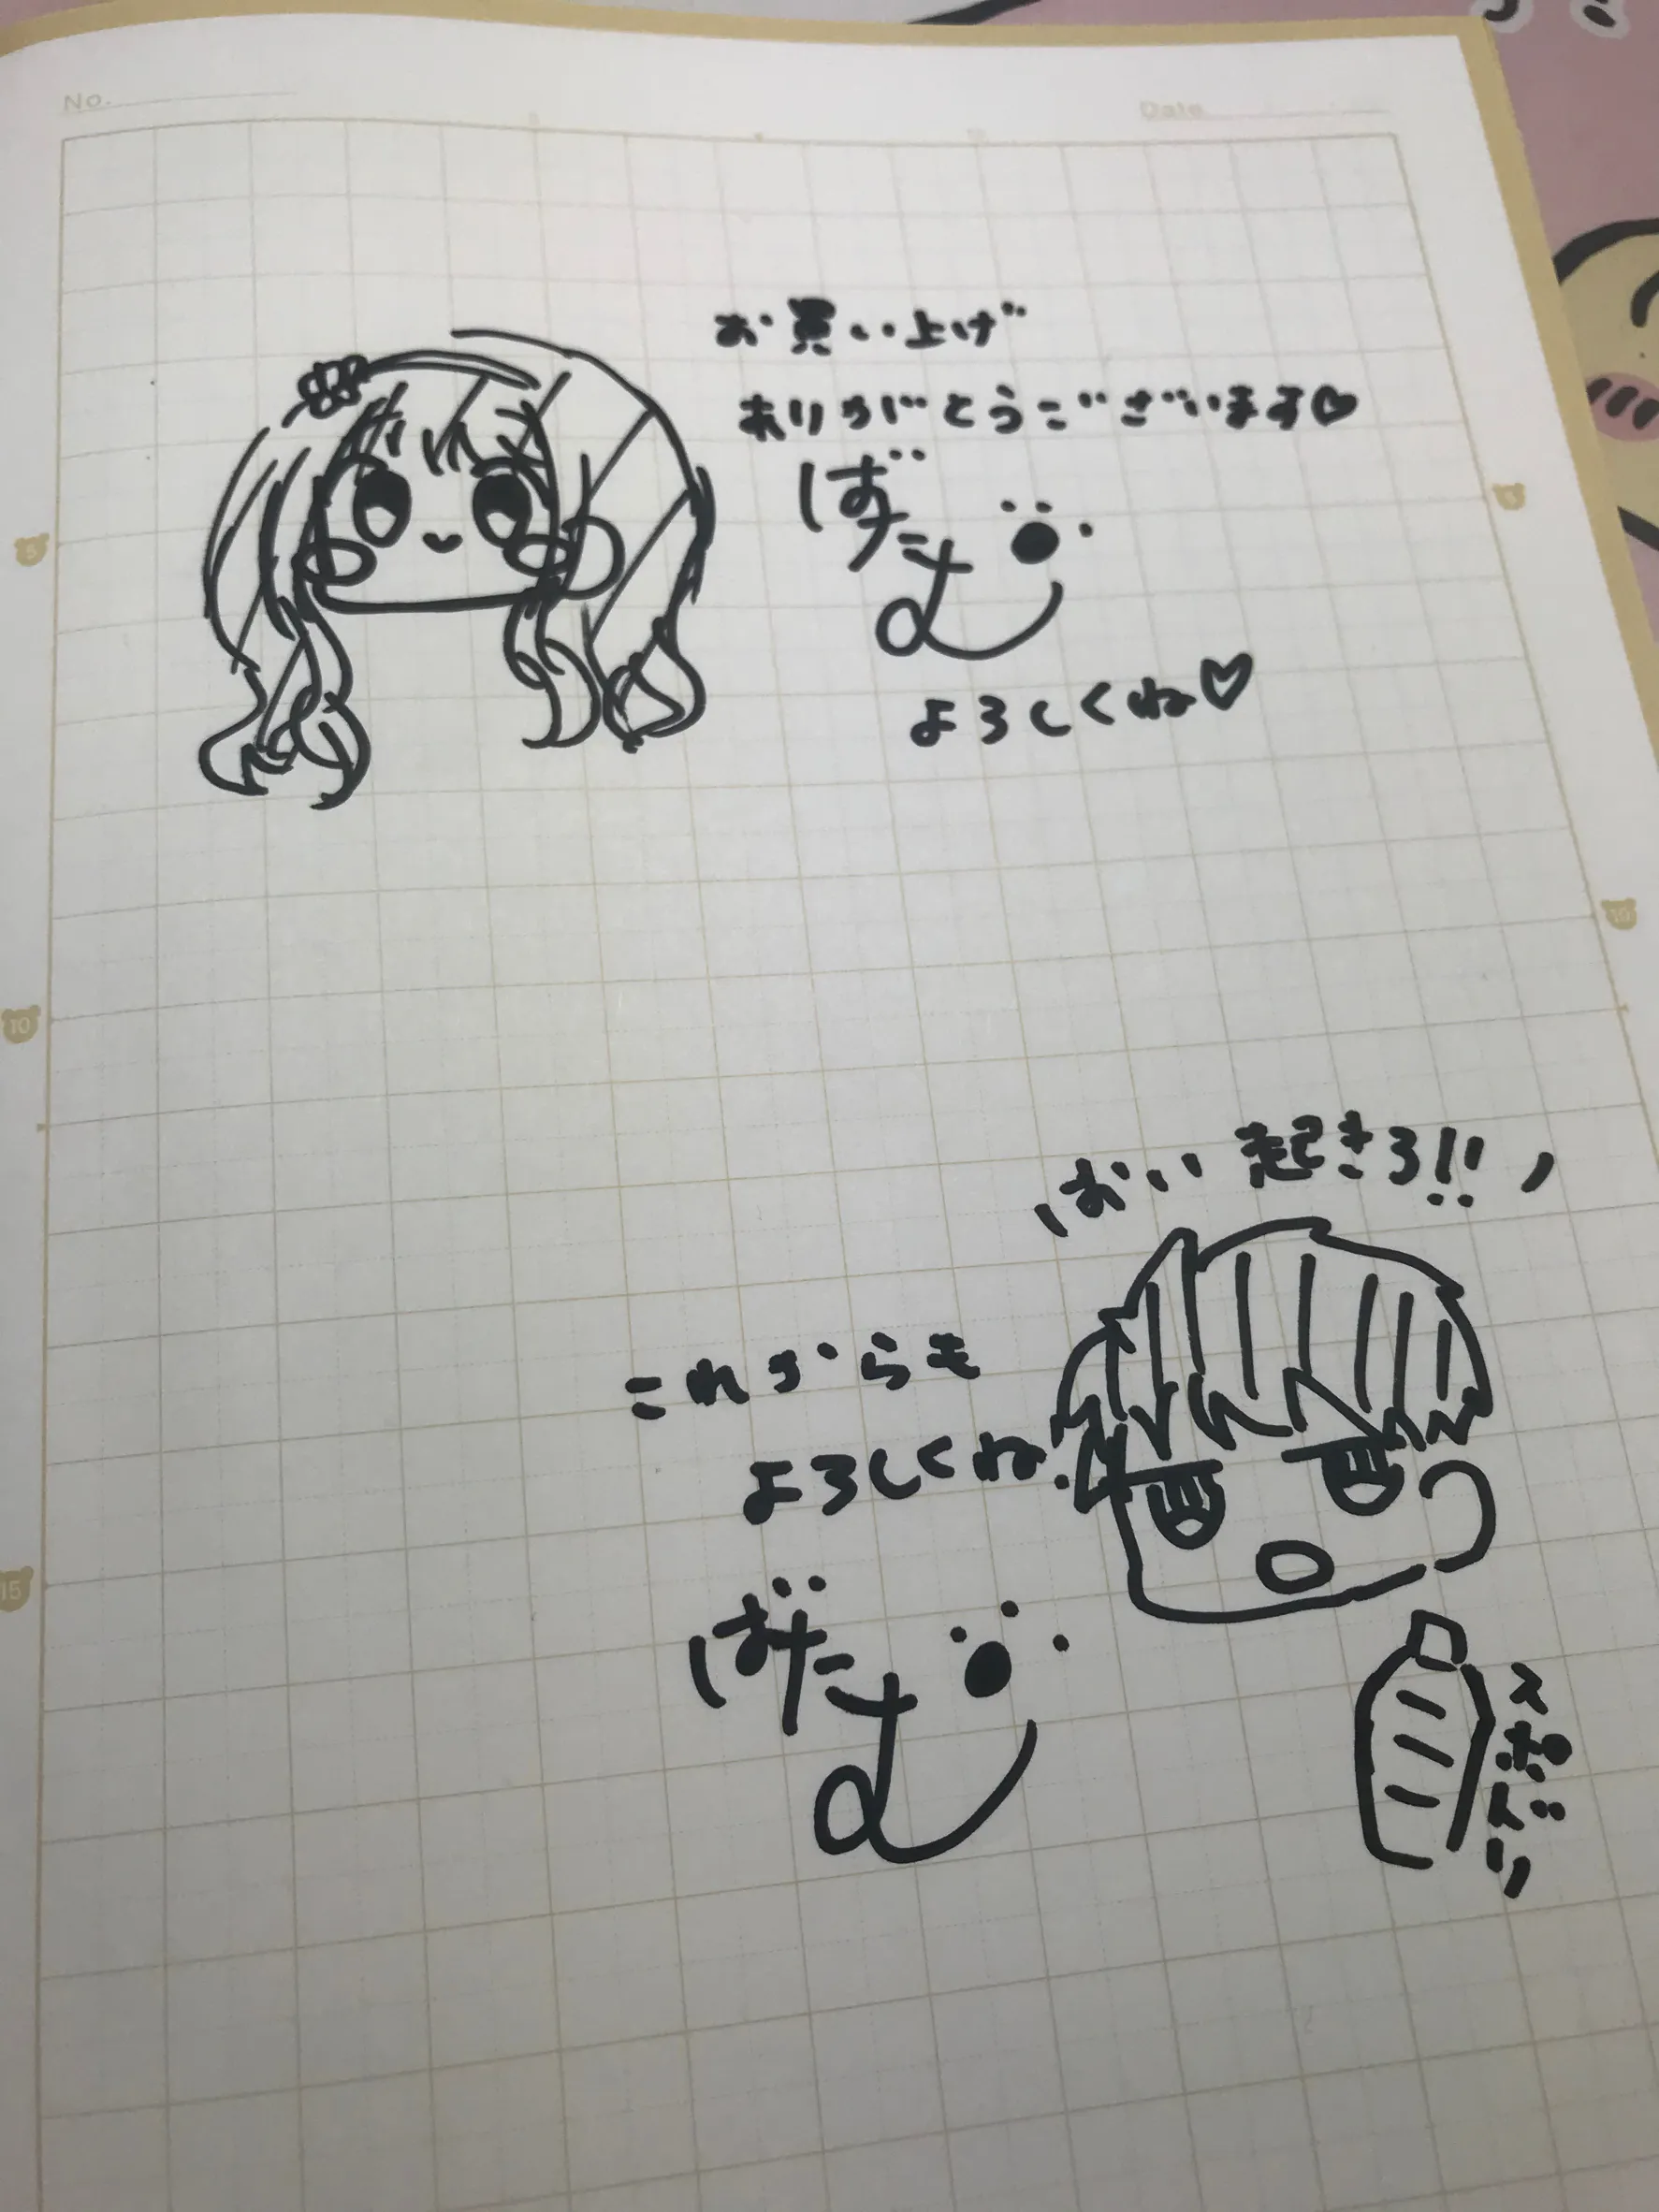 No.
Date
お買い上げ
ありがとうございます♡
よろしくね♡
おい起きろ!!
これからも
よろしくね
スポドリ
5
10
15
5
10